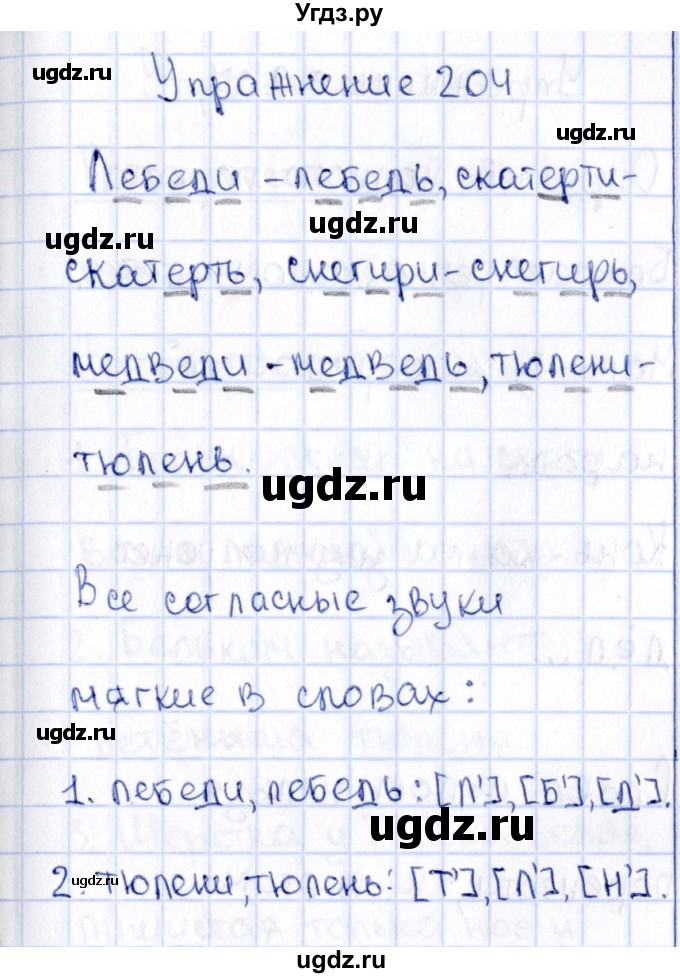 Угдз.ру
ugdz.ru
Упражнение 204
ugdz.ru
Лебеди - лебедь, скатерти-
ugdz.ru
скатерть, снегири - снегирь,
медведи - медведь, тюлени-
тюлень.
ugdz.ru
Все согласные звуки
мягкие в словах:
ugdz.ru
1. лебеди, лебедь: [Л'], [Б'], [Д'].
ugdz.ru
2. тюлени, тюлень: [Т'], [Л'], [Н'].
ugdz.ru
ugdz.ru